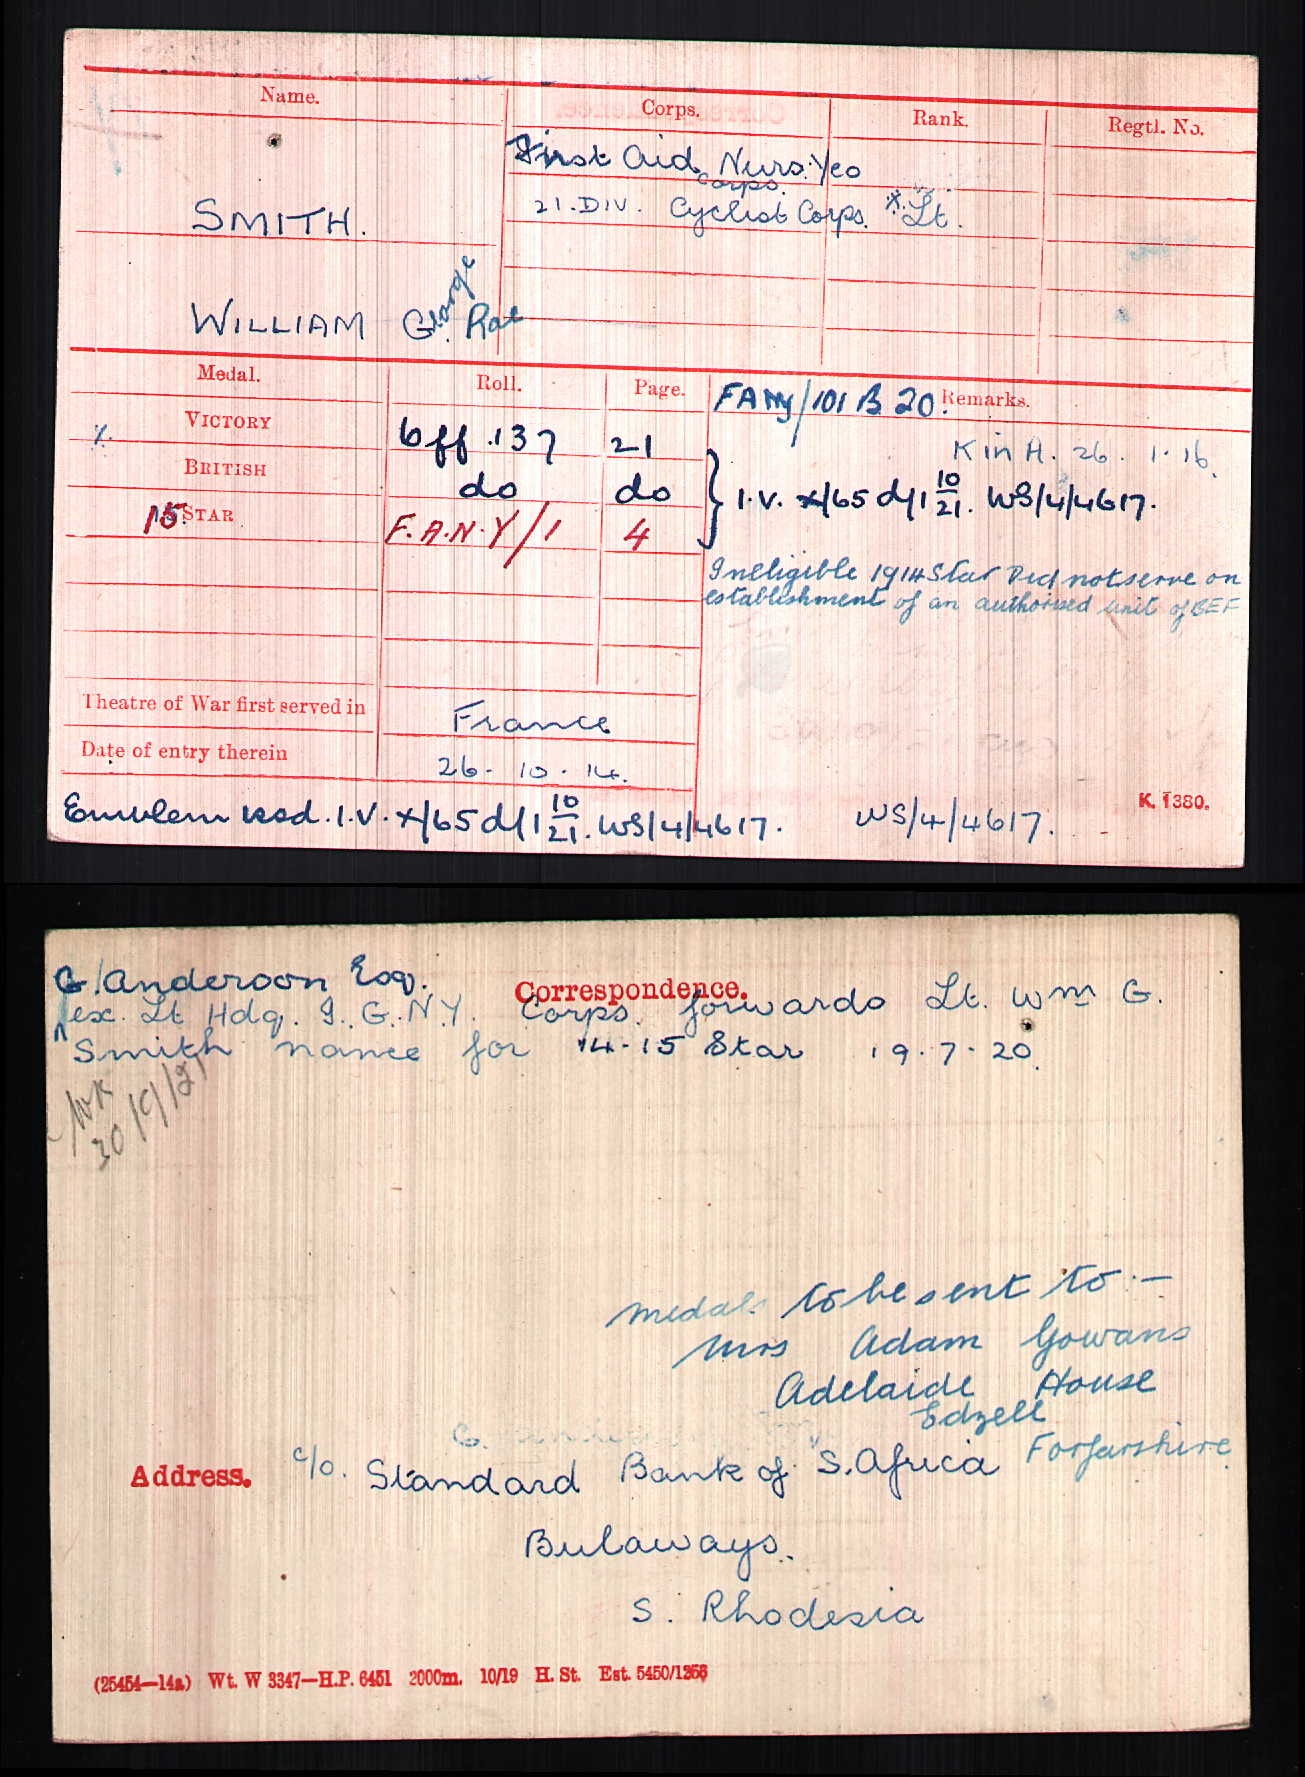 Name.
Corps.
Rank.
Regtl. No.
First Aid Nurs: Yeo
Corps.
SMITH.
21. DIV. Cyclist Corps. *Lt.
WILLIAM George Rae
Medal.
Roll.
Page.
FANY/101 B 20.
Remarks.
VICTORY
Off. 137
21
K in A. 26. 1. 16.
BRITISH
do
do
I.V. x/65 d/1 10/21. WS/4/4617.
15 STAR
F.A.N.Y/1
4
Ineligible 1914 Star Did not serve on
establishment of an authorised unit of BEF
Theatre of War first served in
France
Date of entry therein
26. 10. 14.
K. 1380.
Emblem issd. I.V. x/65 d/1 10/21. WS/4/4617.
WS/4/4617.
G. Anderson Esq.
Correspondence.
ex. Lt Hdq. F.A.N.Y. Corps. forwards Lt. Wm G.
Smith name for 14-15 Star 19.7.20.
30/9/21
Medals to be sent to :-
Mrs Adam Gowans
Adelaide House
Edzell
Forfarshire
Address.
c/o. Standard Bank of S. Africa
Bulawayo.
S. Rhodesia
(25454—14a) Wt. W 3347—H.P. 6451 2000m. 10/19 H. St. Est. 5450/1256